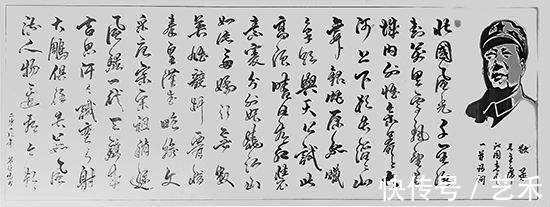 敬选
毛主席
沁园春雪
一首诗词
北國風光千里冰
封萬里雪飄望長
城内外惟余莽莽大
河上下頓失滔滔山
舞銀蛇原馳蠟
象欲與天公試比
高須晴日看紅裝
素裹分外妖嬈江山
如此多嬌引無數
英雄競折腰惜
秦皇漢武略輸文
采唐宗宋祖稍遜
風騷一代天驕成
吉思汗只識彎弓射
大鵰俱往矣數風
流人物還看今朝
快传号／艺禾